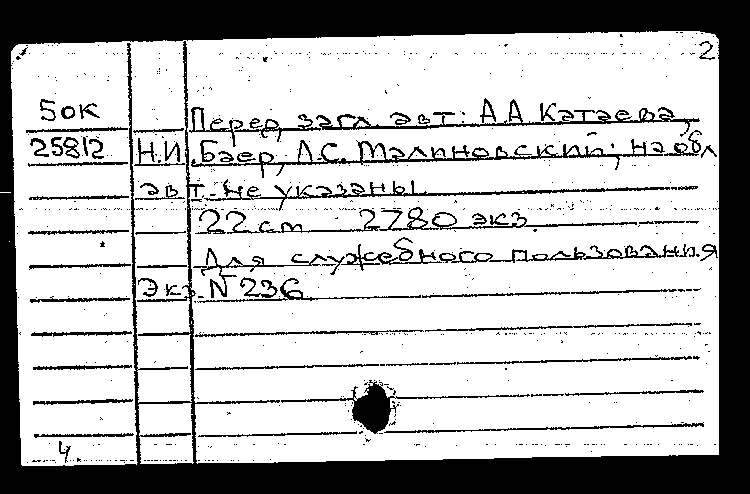 2
50К
Перед загл. авт: А.А Катаева,
25812 Н.И. Баер, Л.С. Малиновский; на обл
авт. не указаны
22 cm 2780 экз.
Для служебного пользования
Экз. N 236
4.